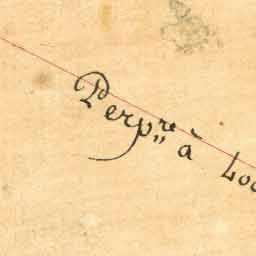 Perp.re à Loc